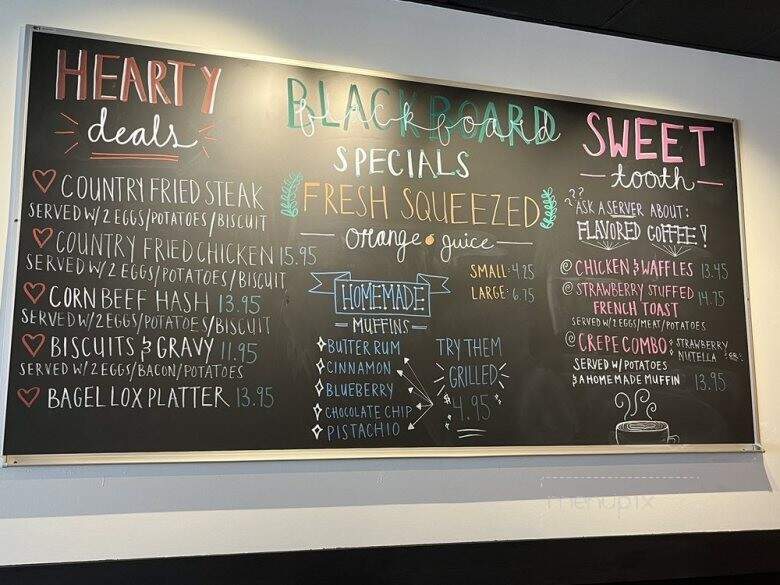 HEARTY
deals
♡ COUNTRY FRIED STEAK
SERVED W/ 2 EGGS/POTATOES/BISCUIT
♡ COUNTRY FRIED CHICKEN 15.95
SERVED W/ 2 EGGS/POTATOES/BISCUIT
♡ CORN BEEF HASH 13.95
SERVED W/ 2 EGGS/POTATOES/BISCUIT
♡ BISCUITS & GRAVY 11.95
SERVED W/ 2 EGGS/BACON/POTATOES
♡ BAGEL LOX PLATTER 13.95
BLACKBOARD
blackboard
SPECIALS
FRESH SQUEEZED
orange juice
SMALL: 4.25
LARGE: 6.75
HOMEMADE
MUFFINS
BUTTER RUM
CINNAMON
BLUEBERRY
CHOCOLATE CHIP
PISTACHIO
TRY THEM
GRILLED
4.95
SWEET
tooth
??
ASK A SERVER ABOUT:
FLAVORED COFFEE!
CHICKEN & WAFFLES 13.45
STRAWBERRY STUFFED
FRENCH TOAST 14.75
SERVED W/ 2 EGGS/MEAT/POTATOES
CREPE COMBO STRAWBERRY
NUTELLA
SERVED W/ POTATOES
& A HOMEMADE MUFFIN 13.95
menupix